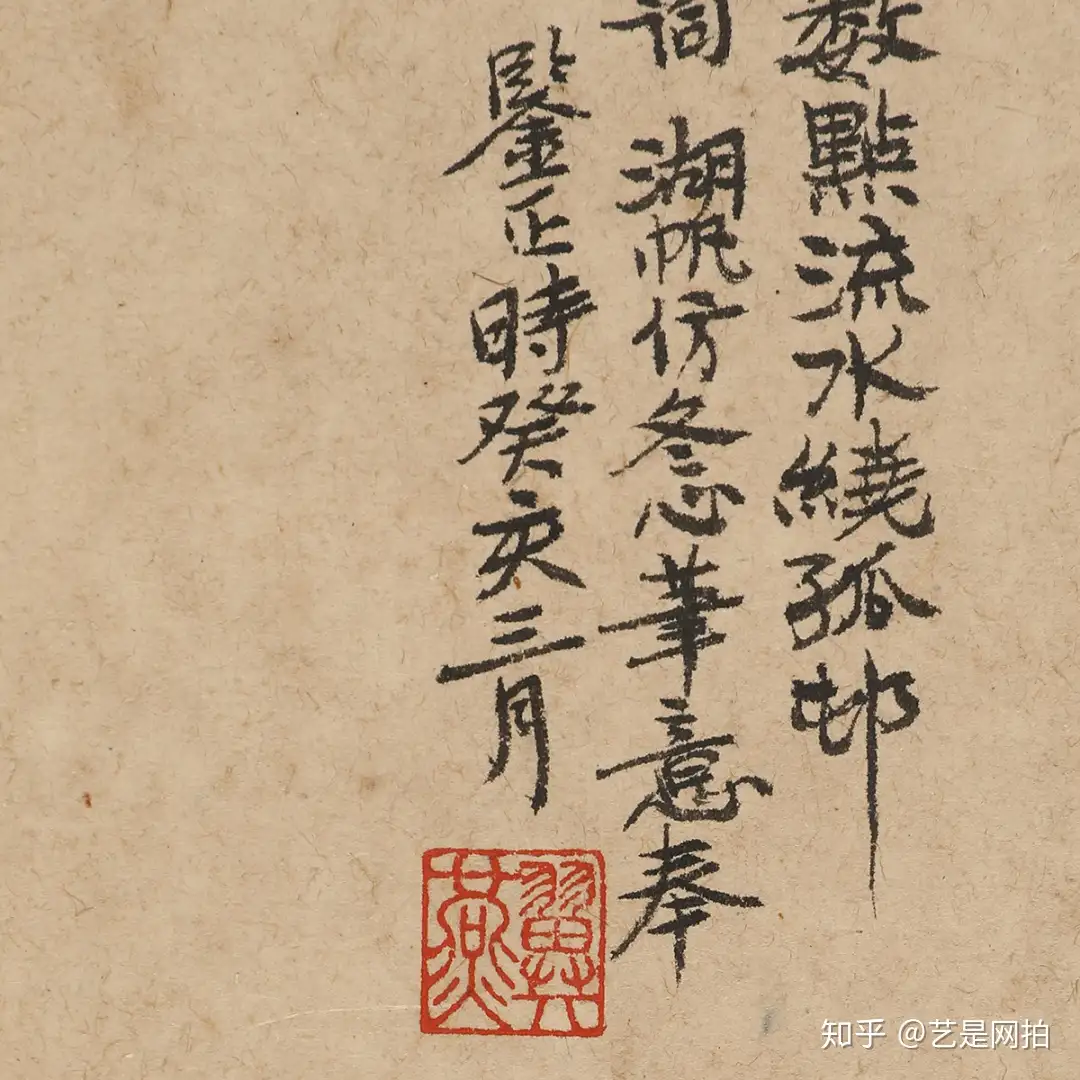 數點流水繞孤邨
詞 湖帆仿忩筆意奉
鑒正時癸亥三月
翼燕
知乎 @艺是网拍